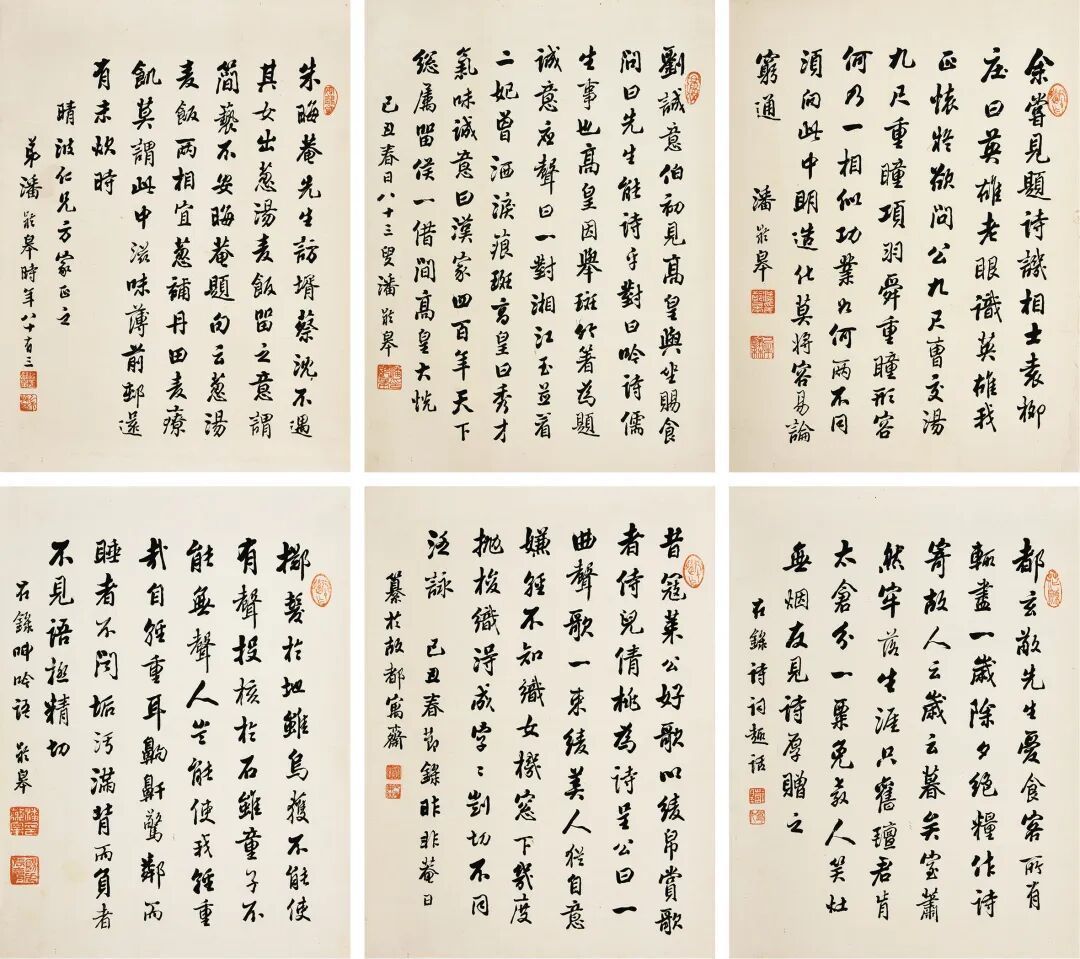 余嘗見題詩譏相士袁柳
庄曰英雄老眼識英雄我
正懷將欲問公九尺曹交湯
九尺重瞳項羽舜重瞳形容
何乃一相似功業如何兩不同
須向此中明造化莫將容易論
窮通
潘齡皋
劉誠意伯初見高皇與坐賜食
問曰先生能詩乎對曰吟詩儒
生事也高皇因舉斑竹箸為題
誠意應聲曰一對湘江玉並看
二妃曾洒淚痕斑高皇曰秀才
氣味誠意曰漢家四百年天下
總屬留侯一借間高皇大悅
己丑春日八十三叟潘齡皋
朱晦菴先生訪壻蔡沈不遇
其女出蔥湯麦飯留之意謂
簡褻不安晦菴題句云蔥湯
麦飯兩相宜蔥補丹田麦療
飢莫謂此中滋味薄前邨還
有未炊時
晴波仁兄方家正之
弟潘齡皋時年八十有三
都玄敬先生憂食客所有
輒盡一歲除夕絕糧作詩
寄故人云歲云暮矣室蕭
然牢落生涯只舊氈君肯
太倉分一粟免教人笑灶
無烟友見詩厚贈之
右錄詩詞趣話
昔寇萊公好歌以綾帛賞歌
者侍兒倩桃為詩呈公曰一
曲聲歌一束綾美人猶自意
嫌輕不知織女機窓下幾度
拋梭織得成字〻剴切不同
泛詠 己丑春節錄昨非菴日
纂於故都寓齋
擲髮於地雖烏獲不能使
有聲投核於石雖童子不
能無聲人豈能使我輕重
哉自輕重耳齁鼾驚鄰而
睡者不聞垢污滿背而負者
不見語極精切
右錄呻吟語 齡皋